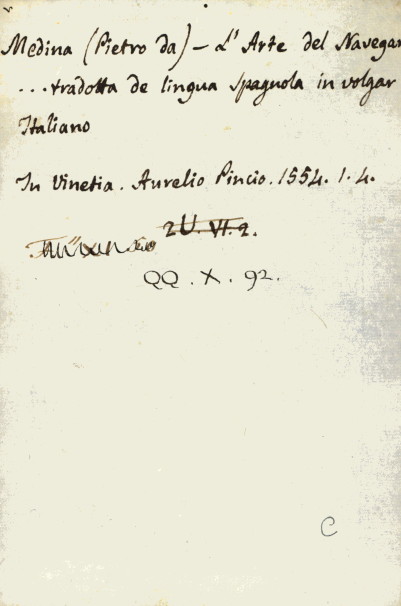 Medina (Pietro da) - L' Arte del Navegar
...tradotta de lingua Spagnola in volgar
Italiano
In Vinetia. Aurelio Pincio. 1554. 1.4.
2U.VI.2.
QQ.X.92.
C